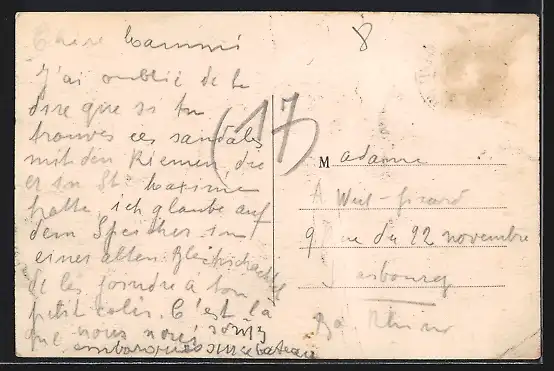 Chère Mammi
J'ai oublié de te
dire que si tu
trouves ces sandales
mit den Riemen, die
er in St. Maxime
hatte, ich glaube auf
dem Speicher in
einer alten
de les joindre à ton
petit colis. C'est là
que nous nous sommes
embarqués sur ce bateau
8
(17)
Madame
A Weil-Picard
9 Rue du 22 novembre
Strasbourg
Bas Rhin